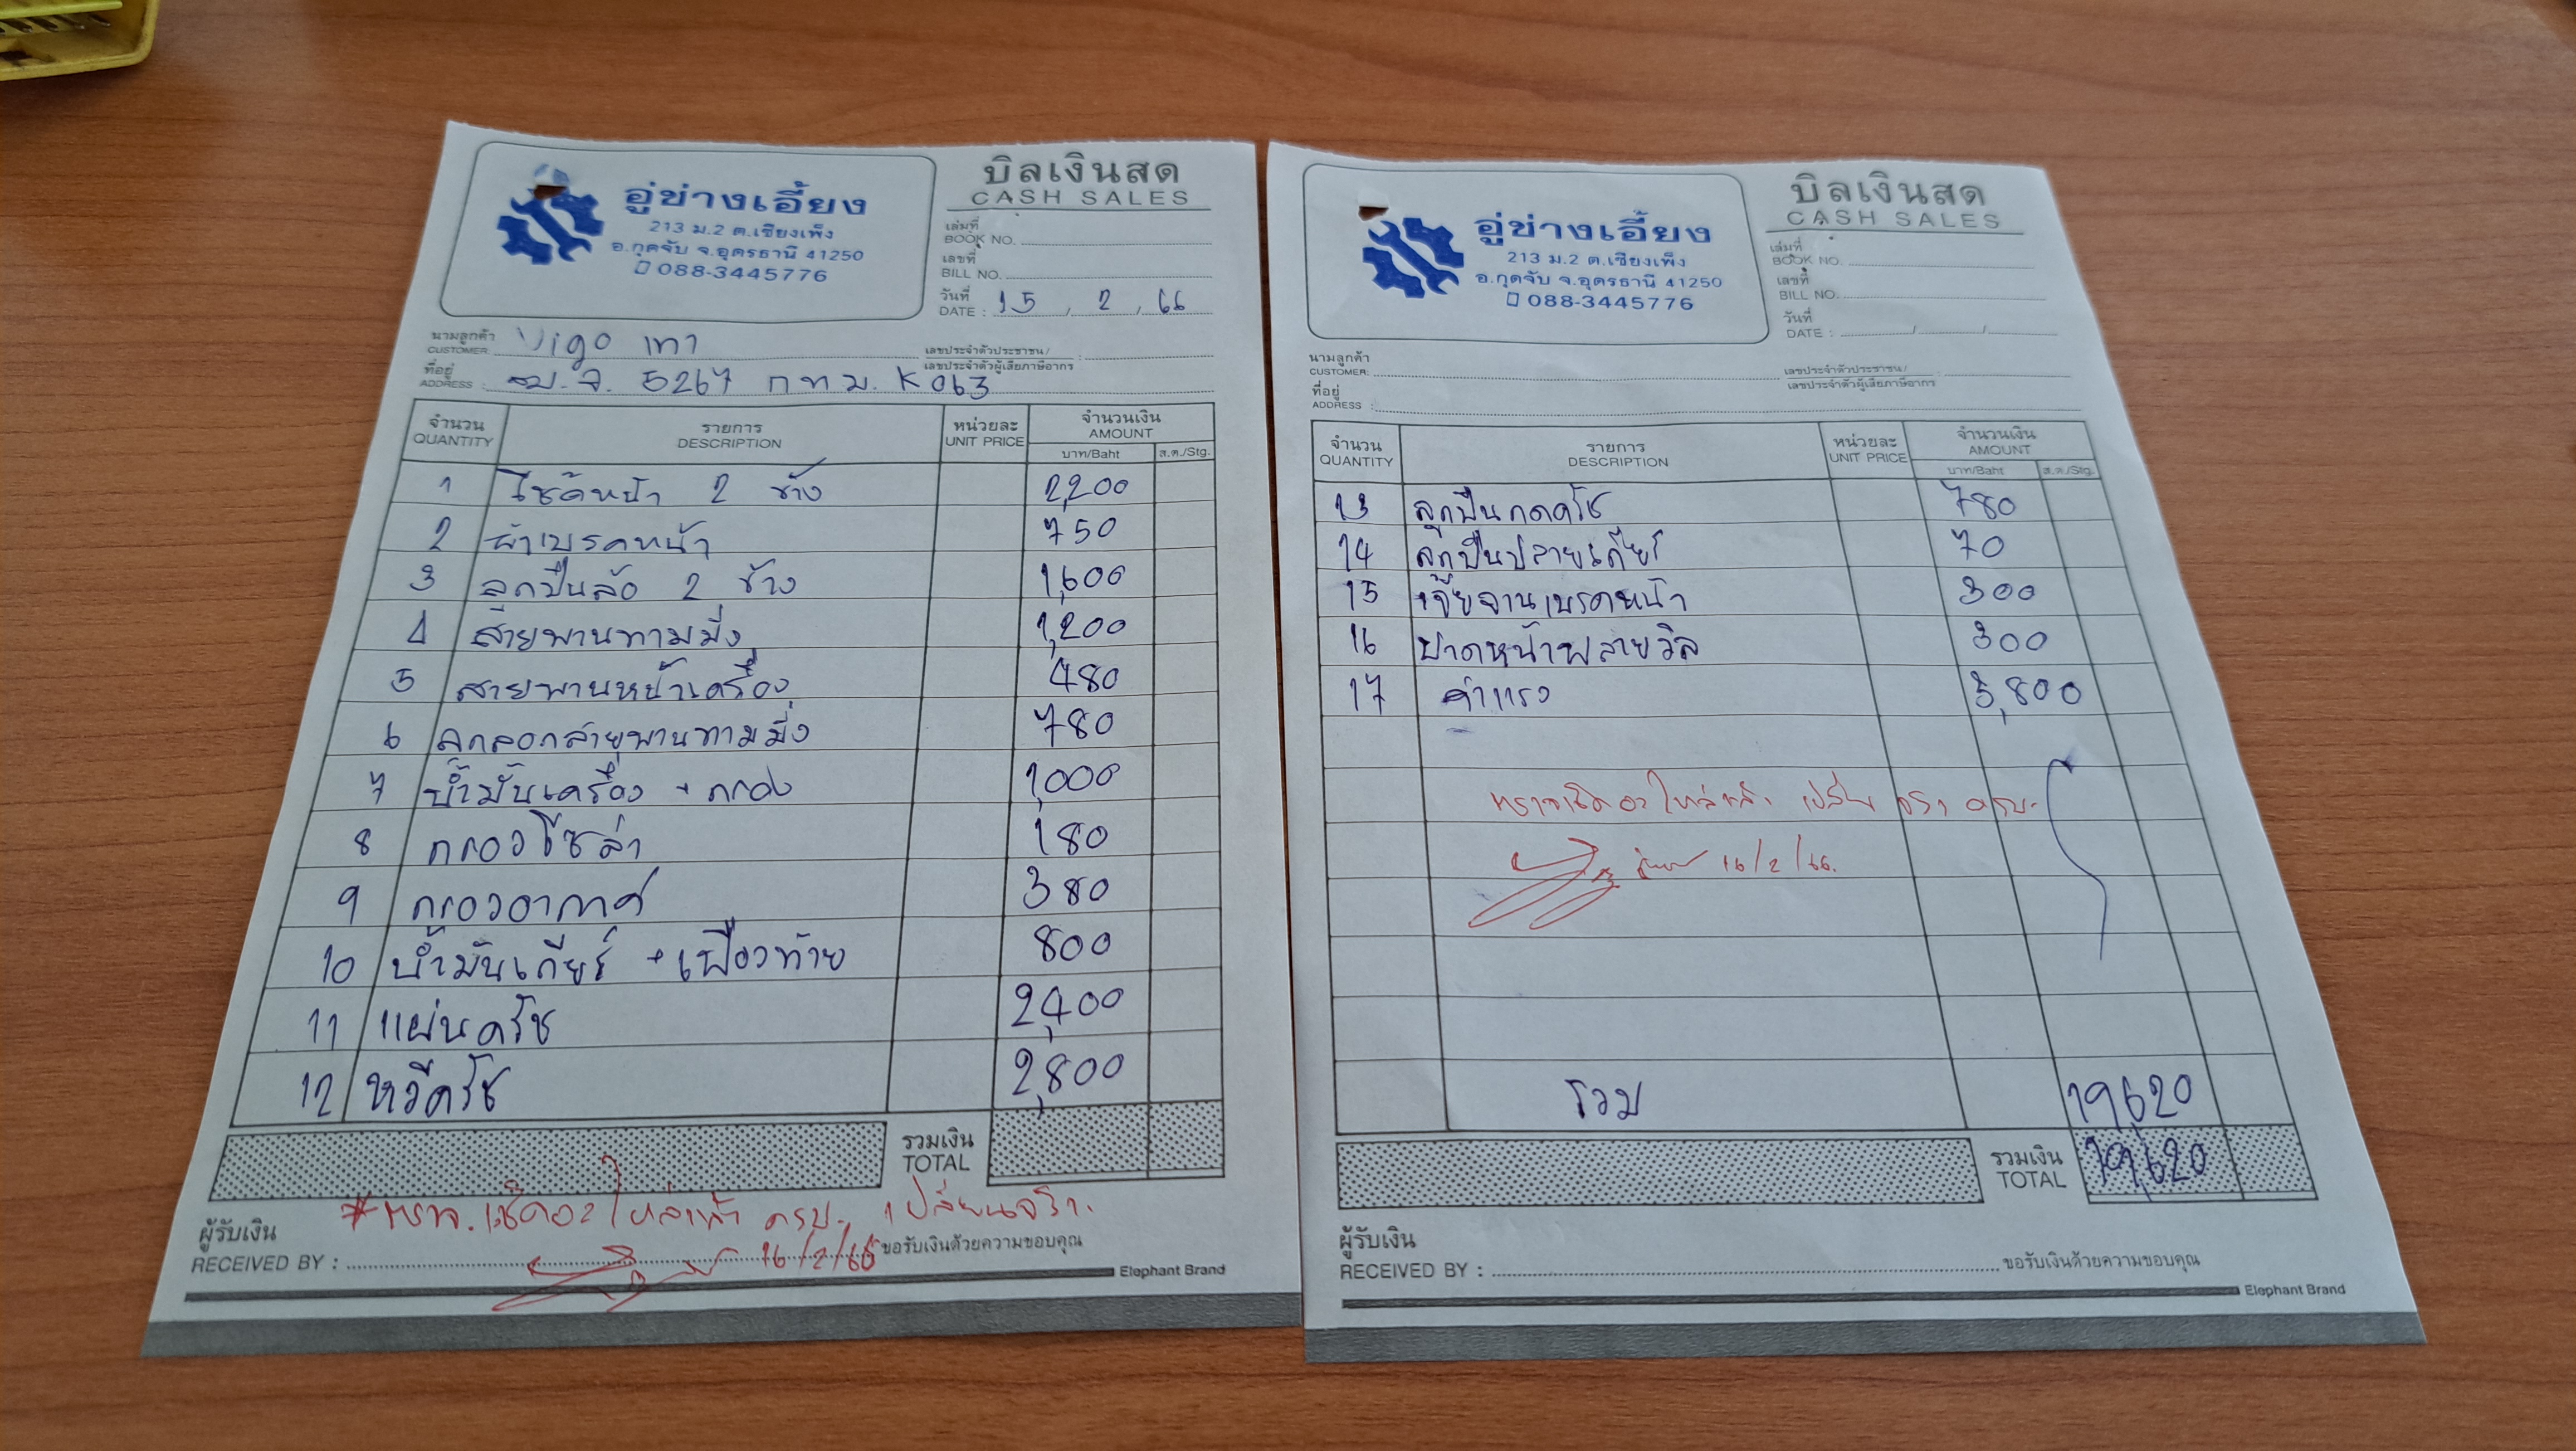 อู่ช่างเอี้ยง
213 ม.2 ต.เชียงเพ็ง
อ.กุดจับ จ.อุดรธานี 41250
088-3445776
บิลเงินสด
CASH SALES
เล่มที่
BOOK NO.
เลขที่
BILL NO.
วันที่
DATE : 15 / 2 / 66
นามลูกค้า
CUSTOMER: Vigo เทา
เลขประจำตัวประชาชน/
เลขประจำตัวผู้เสียภาษีอากร :
ที่อยู่
ADDRESS : 5267 กทม. K063
จำนวน QUANTITY รายการ DESCRIPTION หน่วยละ UNIT PRICE จำนวนเงิน AMOUNT
บาท/Baht ส.ต./Stg.
1 โช้คหน้า 2 ข้าง 2,200
2 ผ้าเบรคหน้า 750
3 ลูกปืนล้อ 2 ข้าง 1,600
4 สายพานทามมิ่ง 1,200
5 สายพานหน้าเครื่อง 480
6 ลูกลอกสายพานทามมิ่ง 780
7 น้ำมันเครื่อง + กรอง 1,000
8 กรองโซล่า 180
9 กรองอากาศ 380
10 น้ำมันเกียร์ + เฟืองท้าย 800
11 แผ่นครัช 2,400
12 หวีครัช 2,800
รวมเงิน
TOTAL
เช็คอะไหล่แล้ว ครบ. เปลี่ยนจริง.
16/2/66
ผู้รับเงิน
RECEIVED BY :
ขอรับเงินด้วยความขอบคุณ
Elephant Brand
อู่ช่างเอี้ยง
213 ม.2 ต.เชียงเพ็ง
อ.กุดจับ จ.อุดรธานี 41250
088-3445776
บิลเงินสด
CASH SALES
เล่มที่
BOOK NO.
เลขที่
BILL NO.
วันที่
DATE : / /
นามลูกค้า
CUSTOMER:
เลขประจำตัวประชาชน/
เลขประจำตัวผู้เสียภาษีอากร :
ที่อยู่
ADDRESS :
จำนวน QUANTITY รายการ DESCRIPTION หน่วยละ UNIT PRICE จำนวนเงิน AMOUNT
บาท/Baht ส.ต./Stg.
13 ลูกปืนกดครัช 780
14 ลูกปืนปลายเกียร์ 70
15 เจียจานเบรคหน้า 300
16 ปาดหน้าพลายวิล 300
17 ค่าแรง 3,800
อะไหล่แล้ว เปลี่ยน จริง ครบ.
16/2/66.
รวม 19,620
รวมเงิน
TOTAL 19,620
ผู้รับเงิน
RECEIVED BY :
ขอรับเงินด้วยความขอบคุณ
Elephant Brand